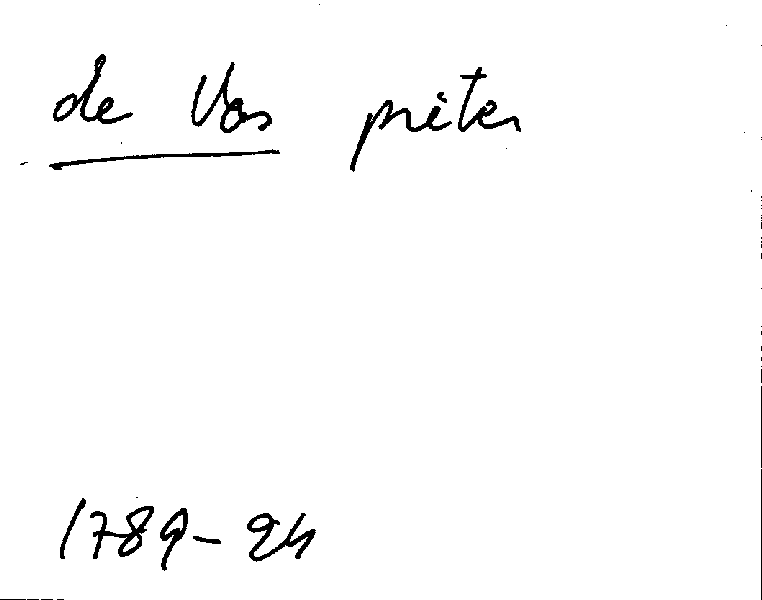 de Vos pieter
1789-24